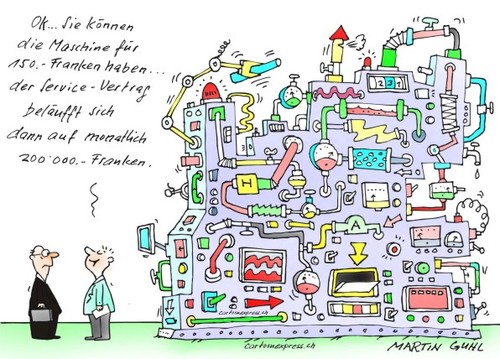 OK... Sie können
die Maschine für
150.- Franken haben...
der Service-Vertrag
beläufft sich
dann auf monatlich
200'000.- Franken.
H
A
cartoonexpress.ch
cartoonexpress.ch
MARTIN GUHL